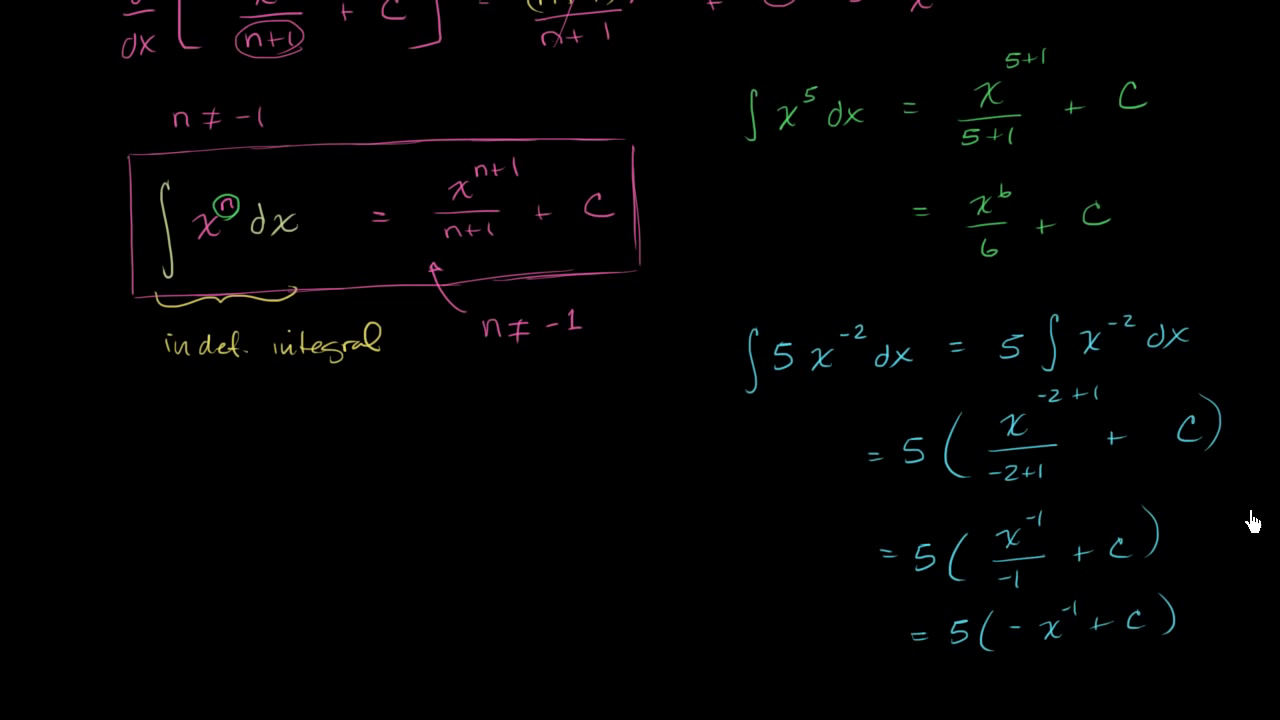 dx [ (n+1) + C ] = n+1
n ≠ -1
∫ xⁿ dx = xⁿ⁺¹/(n+1) + C
indef. integral
n ≠ -1
∫ x⁵ dx = x⁵⁺¹/(5+1) + C
= x⁶/6 + C
∫ 5 x⁻² dx = 5 ∫ x⁻² dx
= 5 ( x⁻²⁺¹/(-2+1) + C )
= 5 ( x⁻¹/-1 + C )
= 5 ( - x⁻¹ + C )